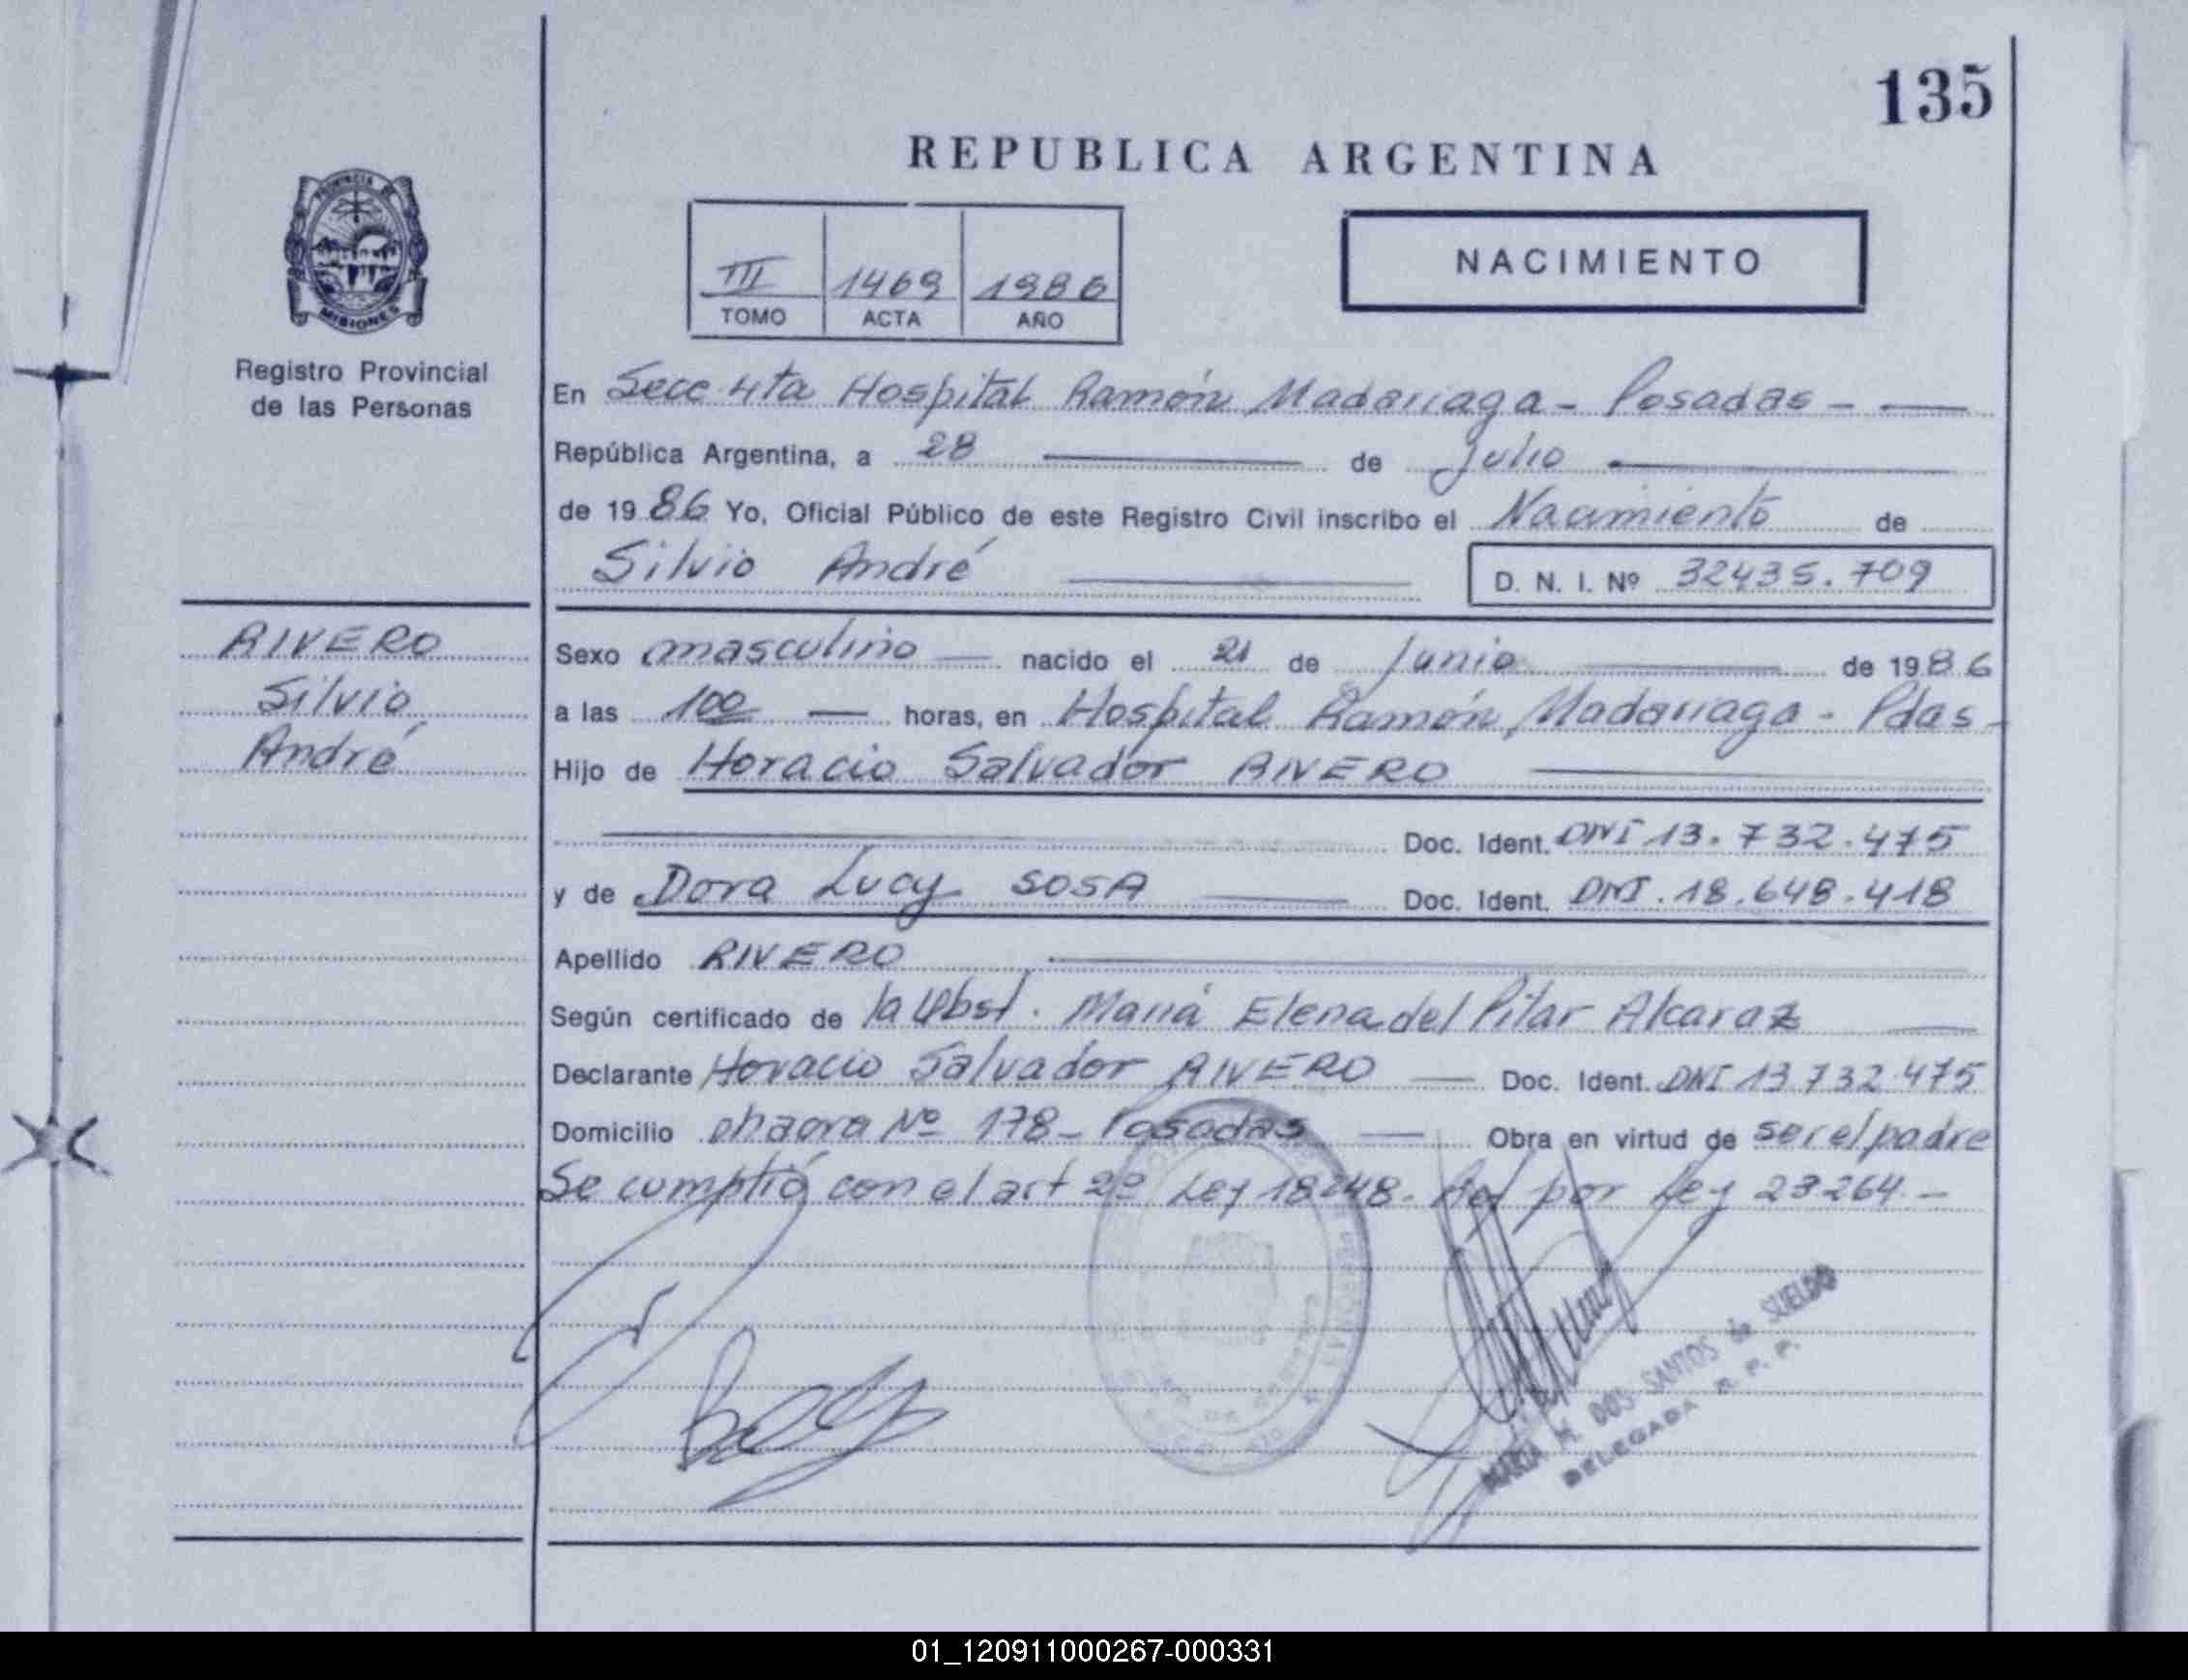 135
REPUBLICA ARGENTINA
PROVINCIA DE
MISIONES
Registro Provincial
de las Personas
III 1469 1986
TOMO ACTA AÑO
NACIMIENTO
En Secc. 4ta Hospital Ramón Madariaga - Posadas -
República Argentina, a 28 de Julio
de 1986 Yo, Oficial Público de este Registro Civil inscribo el Nacimiento de
Silvio André D. N. I. Nº 32435.709
RIVERO
Silvio
André
Sexo masculino nacido el 21 de Junio de 1986
a las 100 horas, en Hospital Ramón Madariaga - Pdas -
Hijo de Horacio Salvador RIVERO
Doc. Ident. DNI 13.732.475
y de Dora Lucy SOSA Doc. Ident. DNI. 18.648.418
Apellido RIVERO
Según certificado de la Obst. María Elena del Pilar Alcaraz
Declarante Horacio Salvador RIVERO Doc. Ident. DNI 13732475
Domicilio chacra Nº 178 - Posadas Obra en virtud de ser el padre
Se cumptió con el art 2º Ley 18248. por Ley 23264 -
MARIA M. DOS SANTOS de SUELDO
DELEGADA R. P. P.
01_120911000267-000331